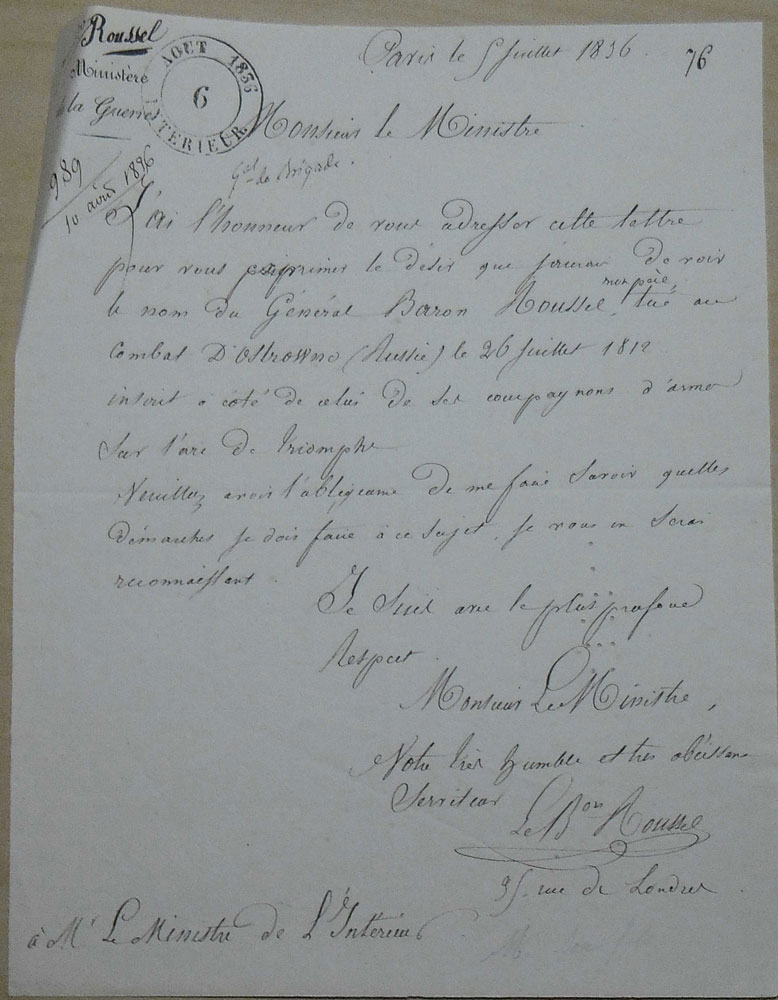 Roussel
Ministère
la Guerre
AOUT 1836
6
INTERIEUR
989
10 avril 1836
Paris le 5 Juillet 1836.
76
Monsieur le Ministre
Gal de Brigade.
J'ai l'honneur de vous adresser cette lettre
pour vous exprimer le désir que j'aurais de voir
mon père,
le nom du Général Baron Roussel, tué au
Combat D'Ostrowno (Russie) le 26 Juillet 1812
inscrit à côté de celui de ses compagnons d'armes
Sur l'arc de triomphe
Veuillez avoir l'obligeance de me faire savoir quelles
démarches je dois faire à ce sujet, je vous en serai
reconnaissant
Je suis avec le plus profond
Respect
Monsieur Le Ministre,
Votre très humble et très obéissant
Serviteur
Le Bon Roussel
35 rue de Londres
à Mr Le Ministre de L'Intérieur